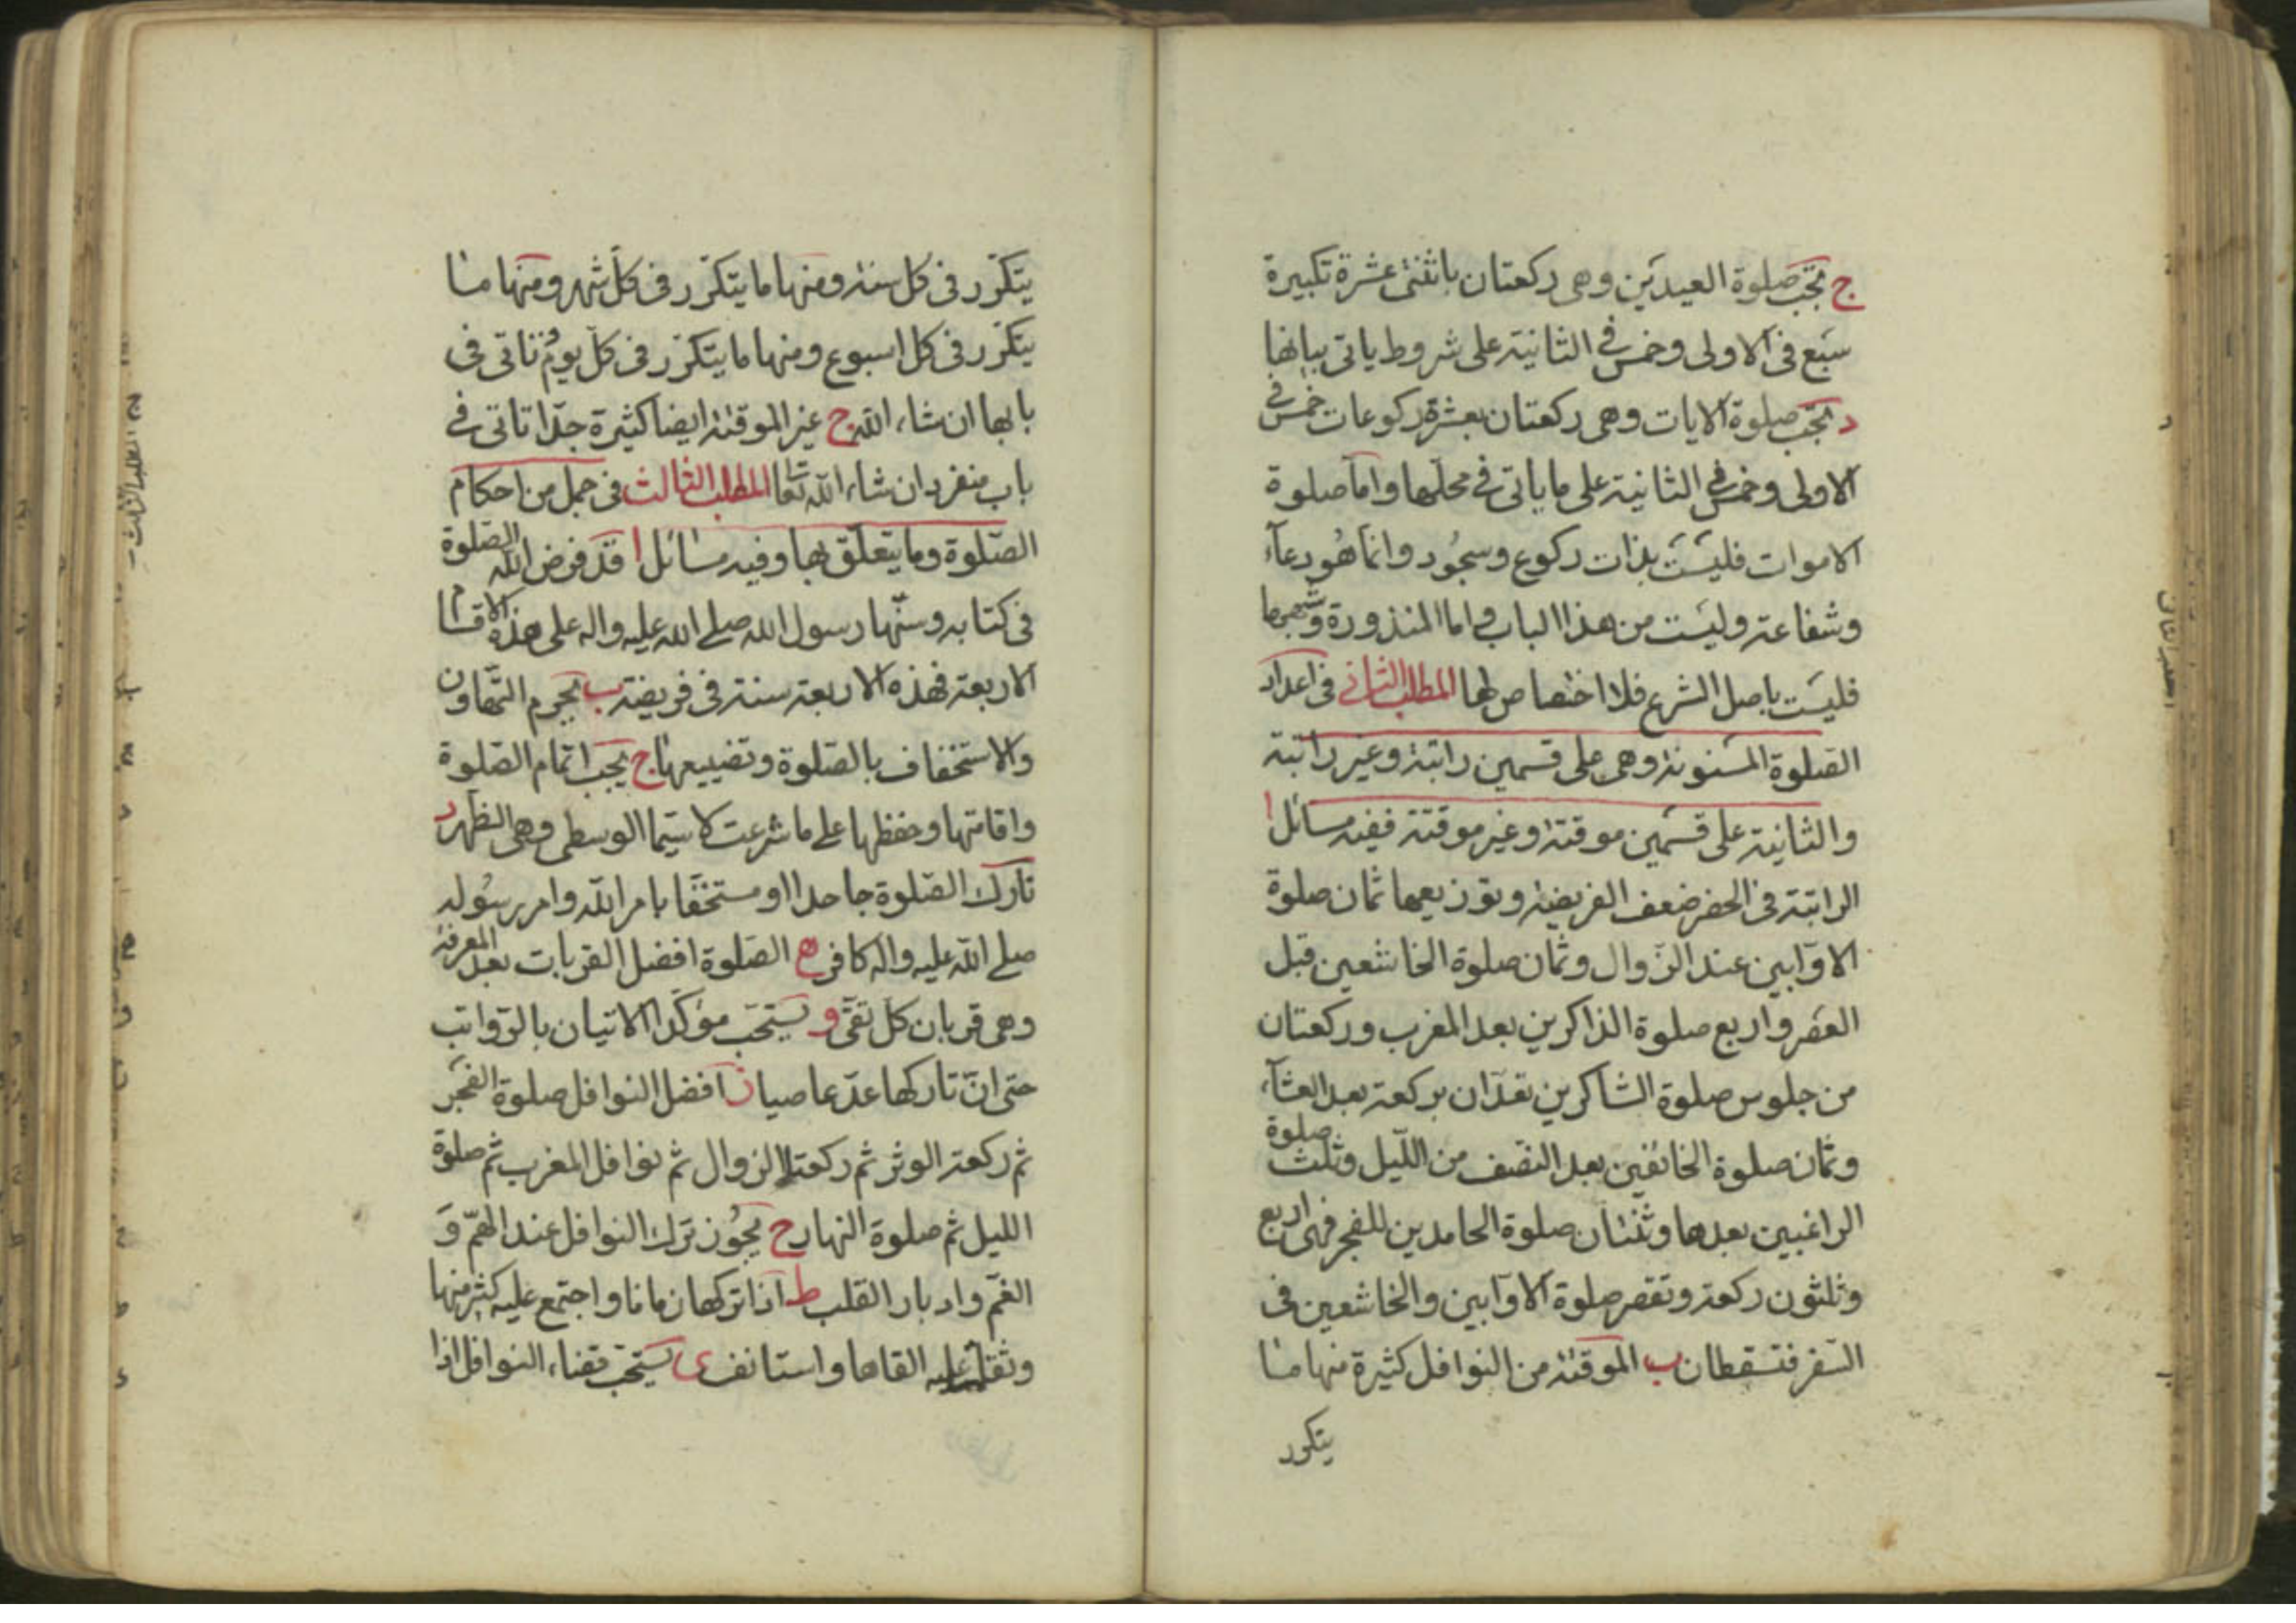 ج تجب صلوة العيدين وهى ركعتان باثنتى عشرة تكبيرة
سبع فى الاولى وخمس فى الثانية على شروط ياتى بيانها
د تجب صلوة الايات وهى ركعتان بعشرة ركوعات خمس فى
الاولى وخمس فى الثانية على ما ياتى فى محلها واما صلوة
الاموات فليست بذات ركوع وسجود وانما هو دعاء
وشفاعة وليست من هذا الباب واما المنذورة وشبهها
فليست باصل الشرع فلا اختصاص لها المطلب الثانى فى اعداد
الصلوة المسنونة وهى على قسمين راتبة وغير راتبة
والثانية على قسمين موقتة وغير موقتة ففيه مسائل ا
الراتبة فى الحضر ضعف الفريضة وتوزيعها ثمان صلوة
الاوّابين عند الزوال وثمان صلوة الخاشعين قبل
العصر واربع صلوة الذاكرين بعد المغرب وركعتان
من جلوس صلوة الشاكرين تعدّان بركعة بعد العشاء
وثمان صلوة الخائفين بعد النصف من اللّيل وثلث صلوة
الراغبين بعدها وثنتان صلوة الحامدين للفجر فهى اربع
وثلثون ركعة وتقصر صلوة الاوّابين والخاشعين فى
السفر فتسقطان ب الموقتة من النوافل كثيرة منها ما
يتكرر
يتكرّر فى كل سنة ومنها ما يتكرّر فى كلّ شهر ومنها ما
يتكرّر فى كل اسبوع ومنها ما يتكرّر فى كلّ يوم تاتى فى
بابها ان شاء الله ج غير الموقتة ايضا كثيرة جدّا تاتى فى
باب منفرد ان شاء الله تعا المطلب الثالث فى جمل من احكام
الصّلوة وما يتعلّق بها وفيه مسائل ا قد فرض الله الصّلوة
فى كتابه وسنّها رسول الله صلى الله عليه واله على هذه الاقسام
الاربعة فهذه الاربعة سنة فى فريضة ب يحرم التّهاون
والاستخفاف بالصّلوة وتضييعها ج يجب اتمام الصّلوة
واقامتها وحفظها على ما شرعت لا سيّما الوسطى وهى الظهر د
تارك الصّلوة جاحدا او مستخفّا بامر الله وامر رسوله
صلى الله عليه واله كافر ه الصّلوة افضل القربات بعد المعرفة
وهى قربان كل تقىّ و يستحبّ مؤكّدا الاتيان بالرّواتب
حتى انّ تاركها عدّ عاصيا ز افضل النوافل صلوة الفجر
ثم ركعة الوتر ثم ركعتا الزوال ثم نوافل المغرب ثم صلوة
الليل ثم صلوة النهار ح يجوز ترك النوافل عند الهمّ و
الغمّ وادبار القلب ط اذا تركها زمانا واجتمع عليه كثير منها
وثقلت عليه القاها واستانف ى يستحب قضاء النوافل اذا